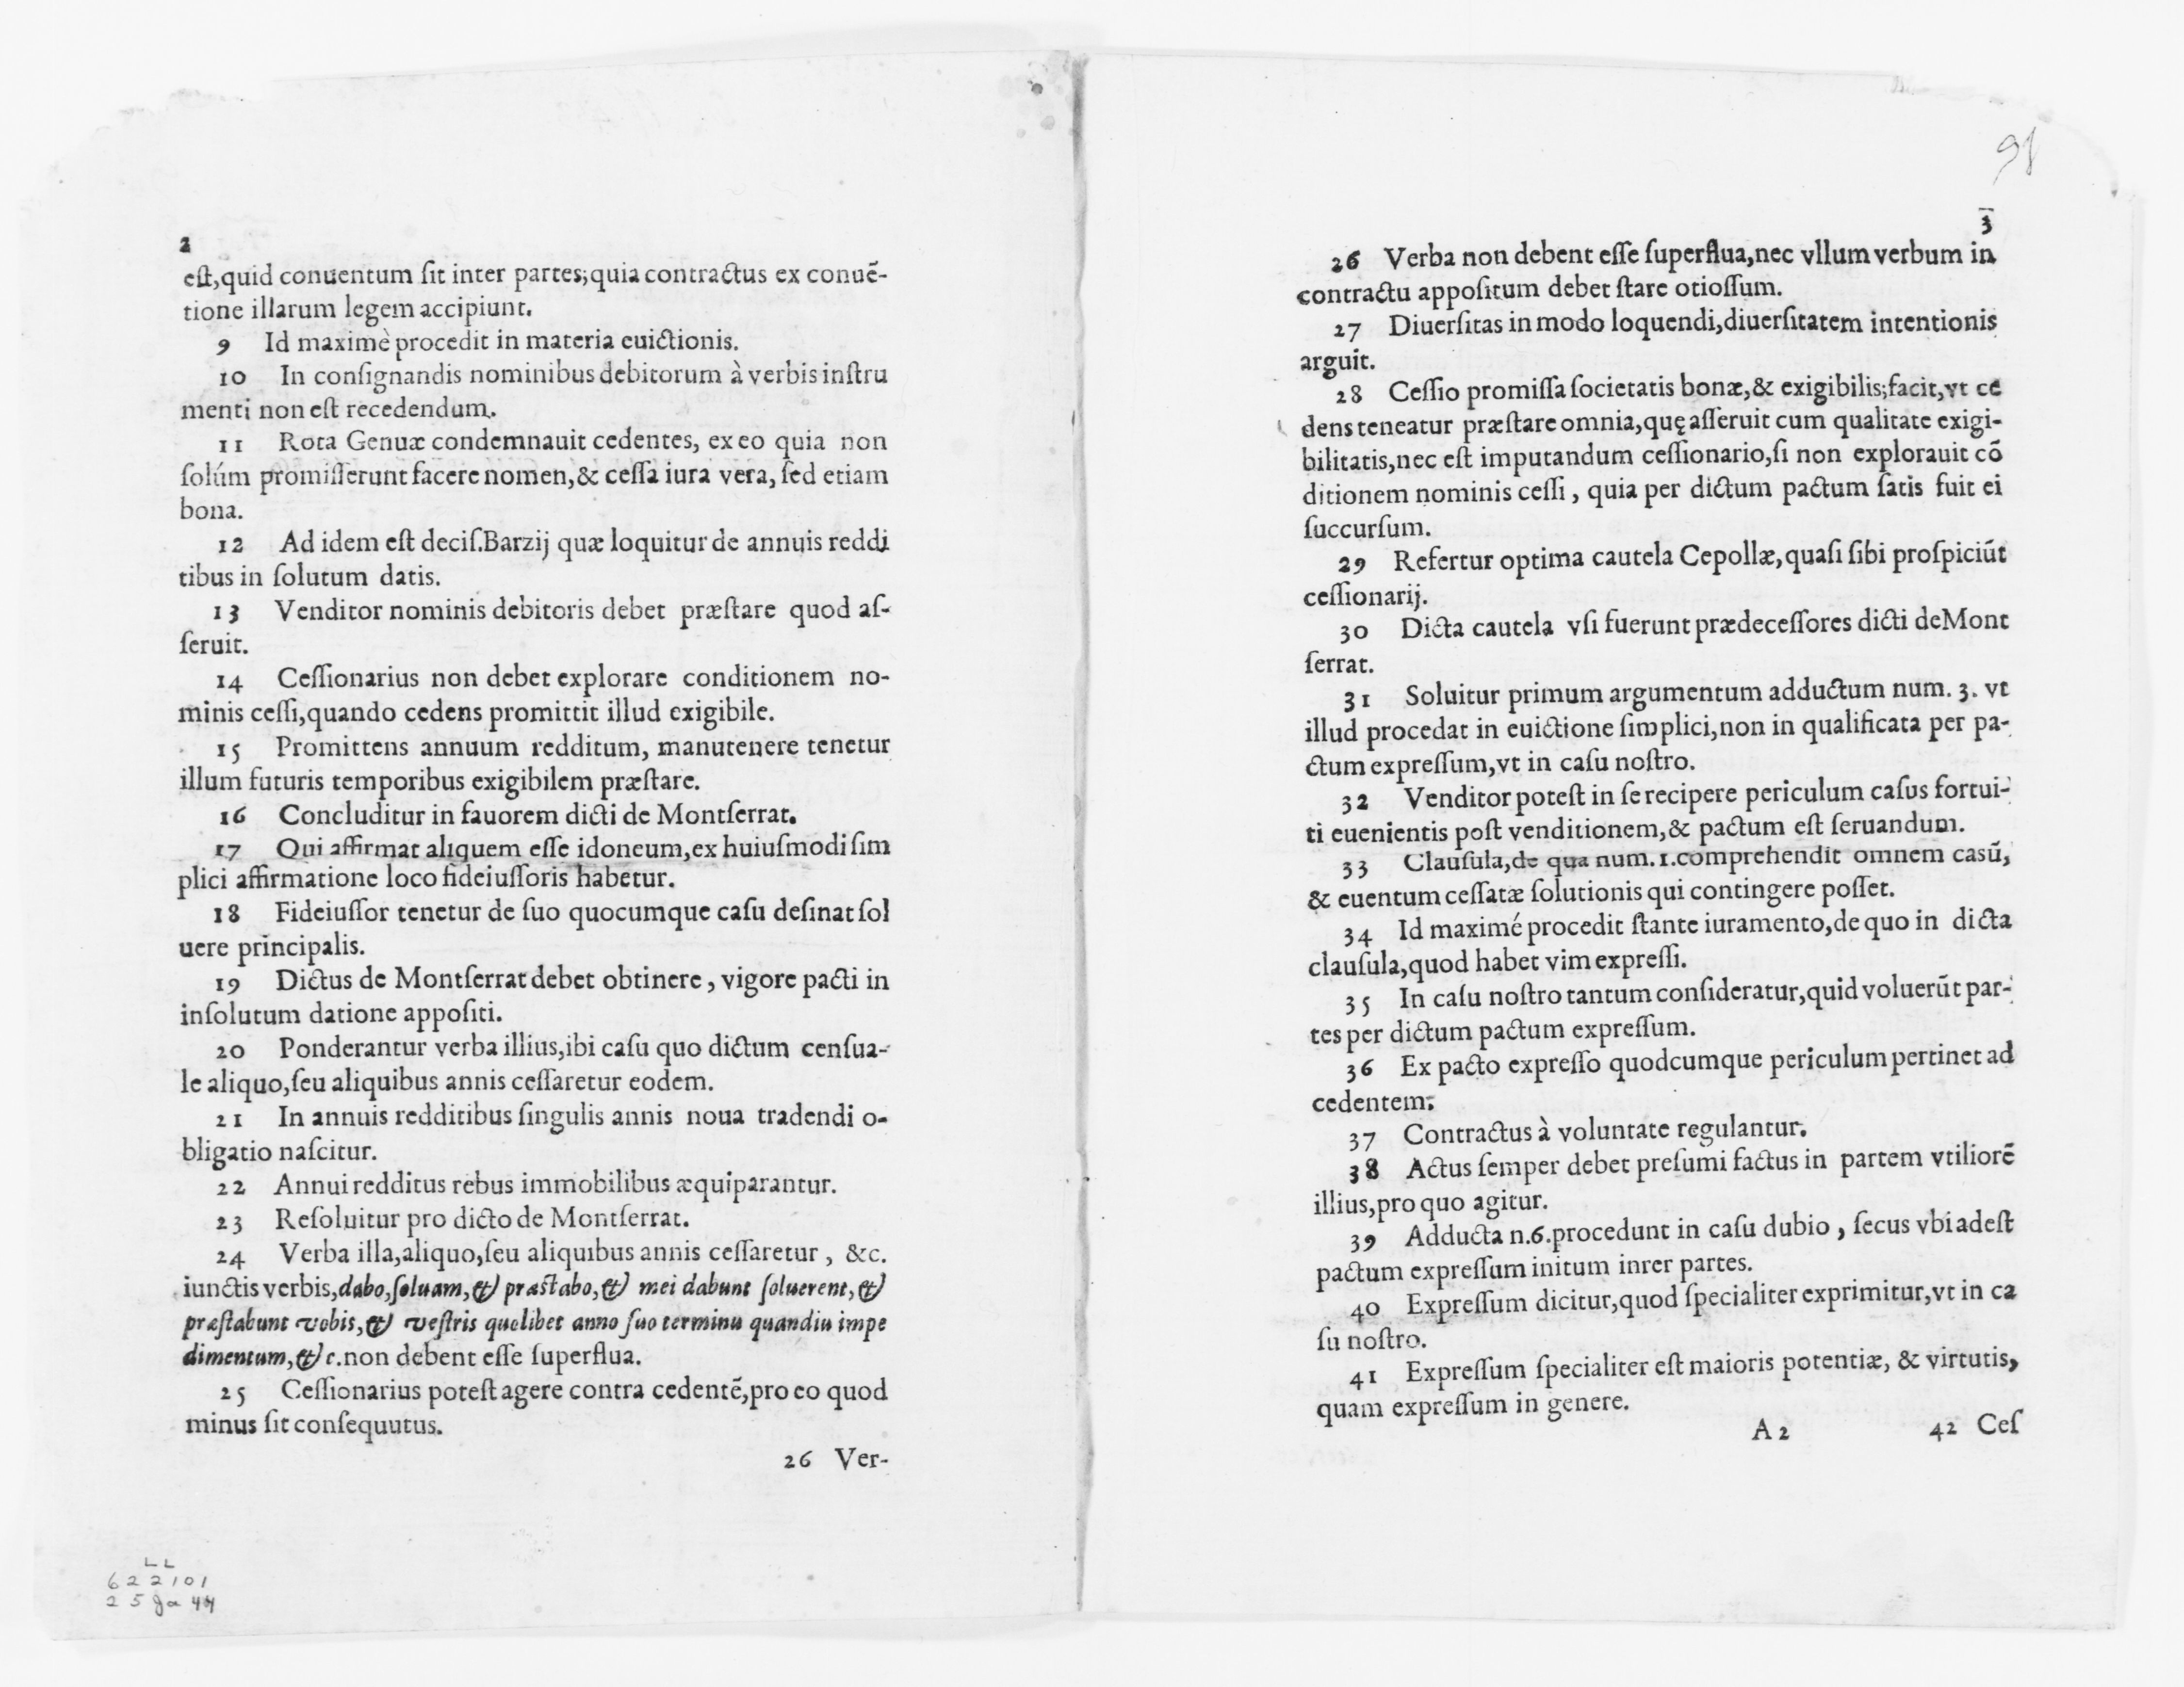 2
est,quid conuentum sit inter partes;quia contractus ex conuẽ-
tione illarum legem accipiunt.
9 Id maximè procedit in materia euictionis.
10 In consignandis nominibus debitorum à verbis instru
menti non est recedendum.
11 Rota Genuæ condemnauit cedentes, ex eo quia non
solúm promisserunt facere nomen,& cessa iura vera, sed etiam
bona.
12 Ad idem est decis.Barzij quæ loquitur de annuis reddi
tibus in solutum datis.
13 Venditor nominis debitoris debet præstare quod as-
seruit.
14 Cessionarius non debet explorare conditionem no-
minis cessi,quando cedens promittit illud exigibile.
15 Promittens annuum redditum, manutenere tenetur
illum futuris temporibus exigibilem præstare.
16 Concluditur in fauorem dicti de Montserrat.
17 Qui affirmat aliquem esse idoneum,ex huiusmodi sim
plici affirmatione loco fideiussoris habetur.
18 Fideiussor tenetur de suo quocumque casu desinat sol
uere principalis.
19 Dictus de Montserrat debet obtinere, vigore pacti in
insolutum datione appositi.
20 Ponderantur verba illius,ibi casu quo dictum censua-
le aliquo,seu aliquibus annis cessaretur eodem.
21 In annuis redditibus singulis annis noua tradendi o-
bligatio nascitur.
22 Annui redditus rebus immobilibus æquiparantur.
23 Resoluitur pro dicto de Montserrat.
24 Verba illa,aliquo,seu aliquibus annis cessaretur, &c.
iunctis verbis,dabo,soluam,& præstabo,& mei dabunt soluerent,&
præstabunt vobis,& vestris quolibet anno suo terminu quandiu impe
dimentum,&c.non debent esse superflua.
25 Cessionarius potest agere contra cedentẽ,pro eo quod
minus sit consequutus.
26 Ver-
LL
622101
25 Ja 44
98
3
26 Verba non debent esse superflua,nec vllum verbum in
contractu appositum debet stare otiossum.
27 Diuersitas in modo loquendi,diuersitatem intentionis
arguit.
28 Cessio promissa societatis bonæ,& exigibilis;facit,vt ce
dens teneatur præstare omnia,quę asseruit cum qualitate exigi-
bilitatis,nec est imputandum cessionario,si non explorauit cõ
ditionem nominis cessi, quia per dictum pactum satis fuit ei
succursum.
29 Refertur optima cautela Cepollæ,quasi sibi prospiciũt
cessionarij.
30 Dicta cautela vsi fuerunt prædecessores dicti de Mont
serrat.
31 Soluitur primum argumentum adductum num. 3. vt
illud procedat in euictione simplici,non in qualificata per pa-
ctum expressum,vt in casu nostro.
32 Venditor potest in se recipere periculum casus fortui-
ti euenientis post venditionem,& pactum est seruandum.
33 Clausula,de qua num.1.comprehendit omnem casũ,
& euentum cessatæ solutionis qui contingere posset.
34 Id maximé procedit stante iuramento,de quo in dicta
clausula,quod habet vim expressi.
35 In casu nostro tantum consideratur,quid voluerũt par-
tes per dictum pactum expressum.
36 Ex pacto expresso quodcumque periculum pertinet ad
cedentem.
37 Contractus à voluntate regulantur.
38 Actus semper debet presumi factus in partem vtiliorẽ
illius,pro quo agitur.
39 Adducta n.6.procedunt in casu dubio, secus vbi adest
pactum expressum initum inrer partes.
40 Expressum dicitur,quod specialiter exprimitur,vt in ca
su nostro.
41 Expressum specialiter est maioris potentiæ, & virtutis,
quam expressum in genere.
A2 42 Ces